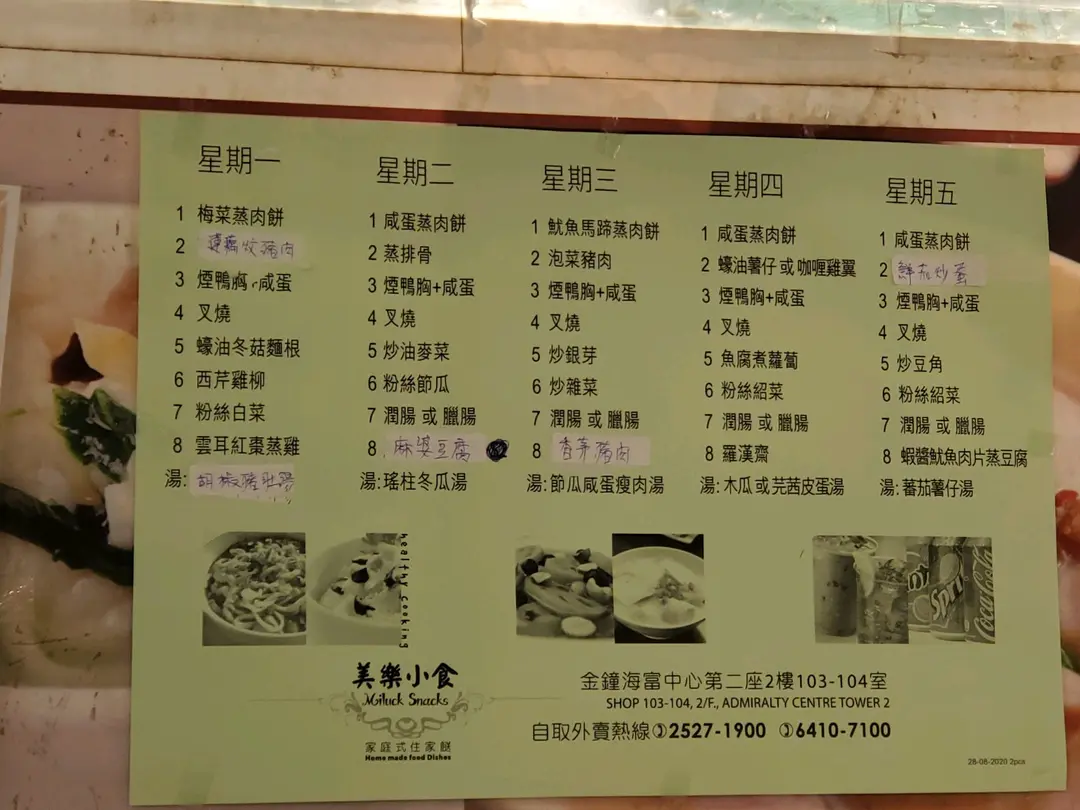 星期一
1 梅菜蒸肉餅
2 蓮藕炆豬肉
3 煙鴨胸 咸蛋
4 叉燒
5 蠔油冬菇麵根
6 西芹雞柳
7 粉絲白菜
8 雲耳紅棗蒸雞
湯: 胡椒豬肚湯
星期二
1 咸蛋蒸肉餅
2 蒸排骨
3 煙鴨胸+咸蛋
4 叉燒
5 炒油麥菜
6 粉絲節瓜
7 潤腸 或 臘腸
8 麻婆豆腐
湯:瑤柱冬瓜湯
星期三
1 魷魚馬蹄蒸肉餅
2 泡菜豬肉
3 煙鴨胸+咸蛋
4 叉燒
5 炒銀芽
6 炒雜菜
7 潤腸 或 臘腸
8 香茅豬肉
湯:節瓜咸蛋瘦肉湯
星期四
1 咸蛋蒸肉餅
2 蠔油薯仔 或 咖喱雞翼
3 煙鴨胸+咸蛋
4 叉燒
5 魚腐煮蘿蔔
6 粉絲紹菜
7 潤腸 或 臘腸
8 羅漢齋
湯: 木瓜 或 芫茜皮蛋湯
星期五
1 咸蛋蒸肉餅
2 鮮茄炒蛋
3 煙鴨胸+咸蛋
4 叉燒
5 炒豆角
6 粉絲紹菜
7 潤腸 或 臘腸
8 蝦醬魷魚肉片蒸豆腐
湯: 蕃茄薯仔湯
healthy cooking
Sprite
Coca-Cola
美樂小食
Miluck Snacks
家庭式住家餸
Home made food Dishes
金鐘海富中心第二座2樓103-104室
SHOP 103-104, 2/F., ADMIRALTY CENTRE TOWER 2
自取外賣熱線 2527-1900 6410-7100
28-08-2020 2pcs